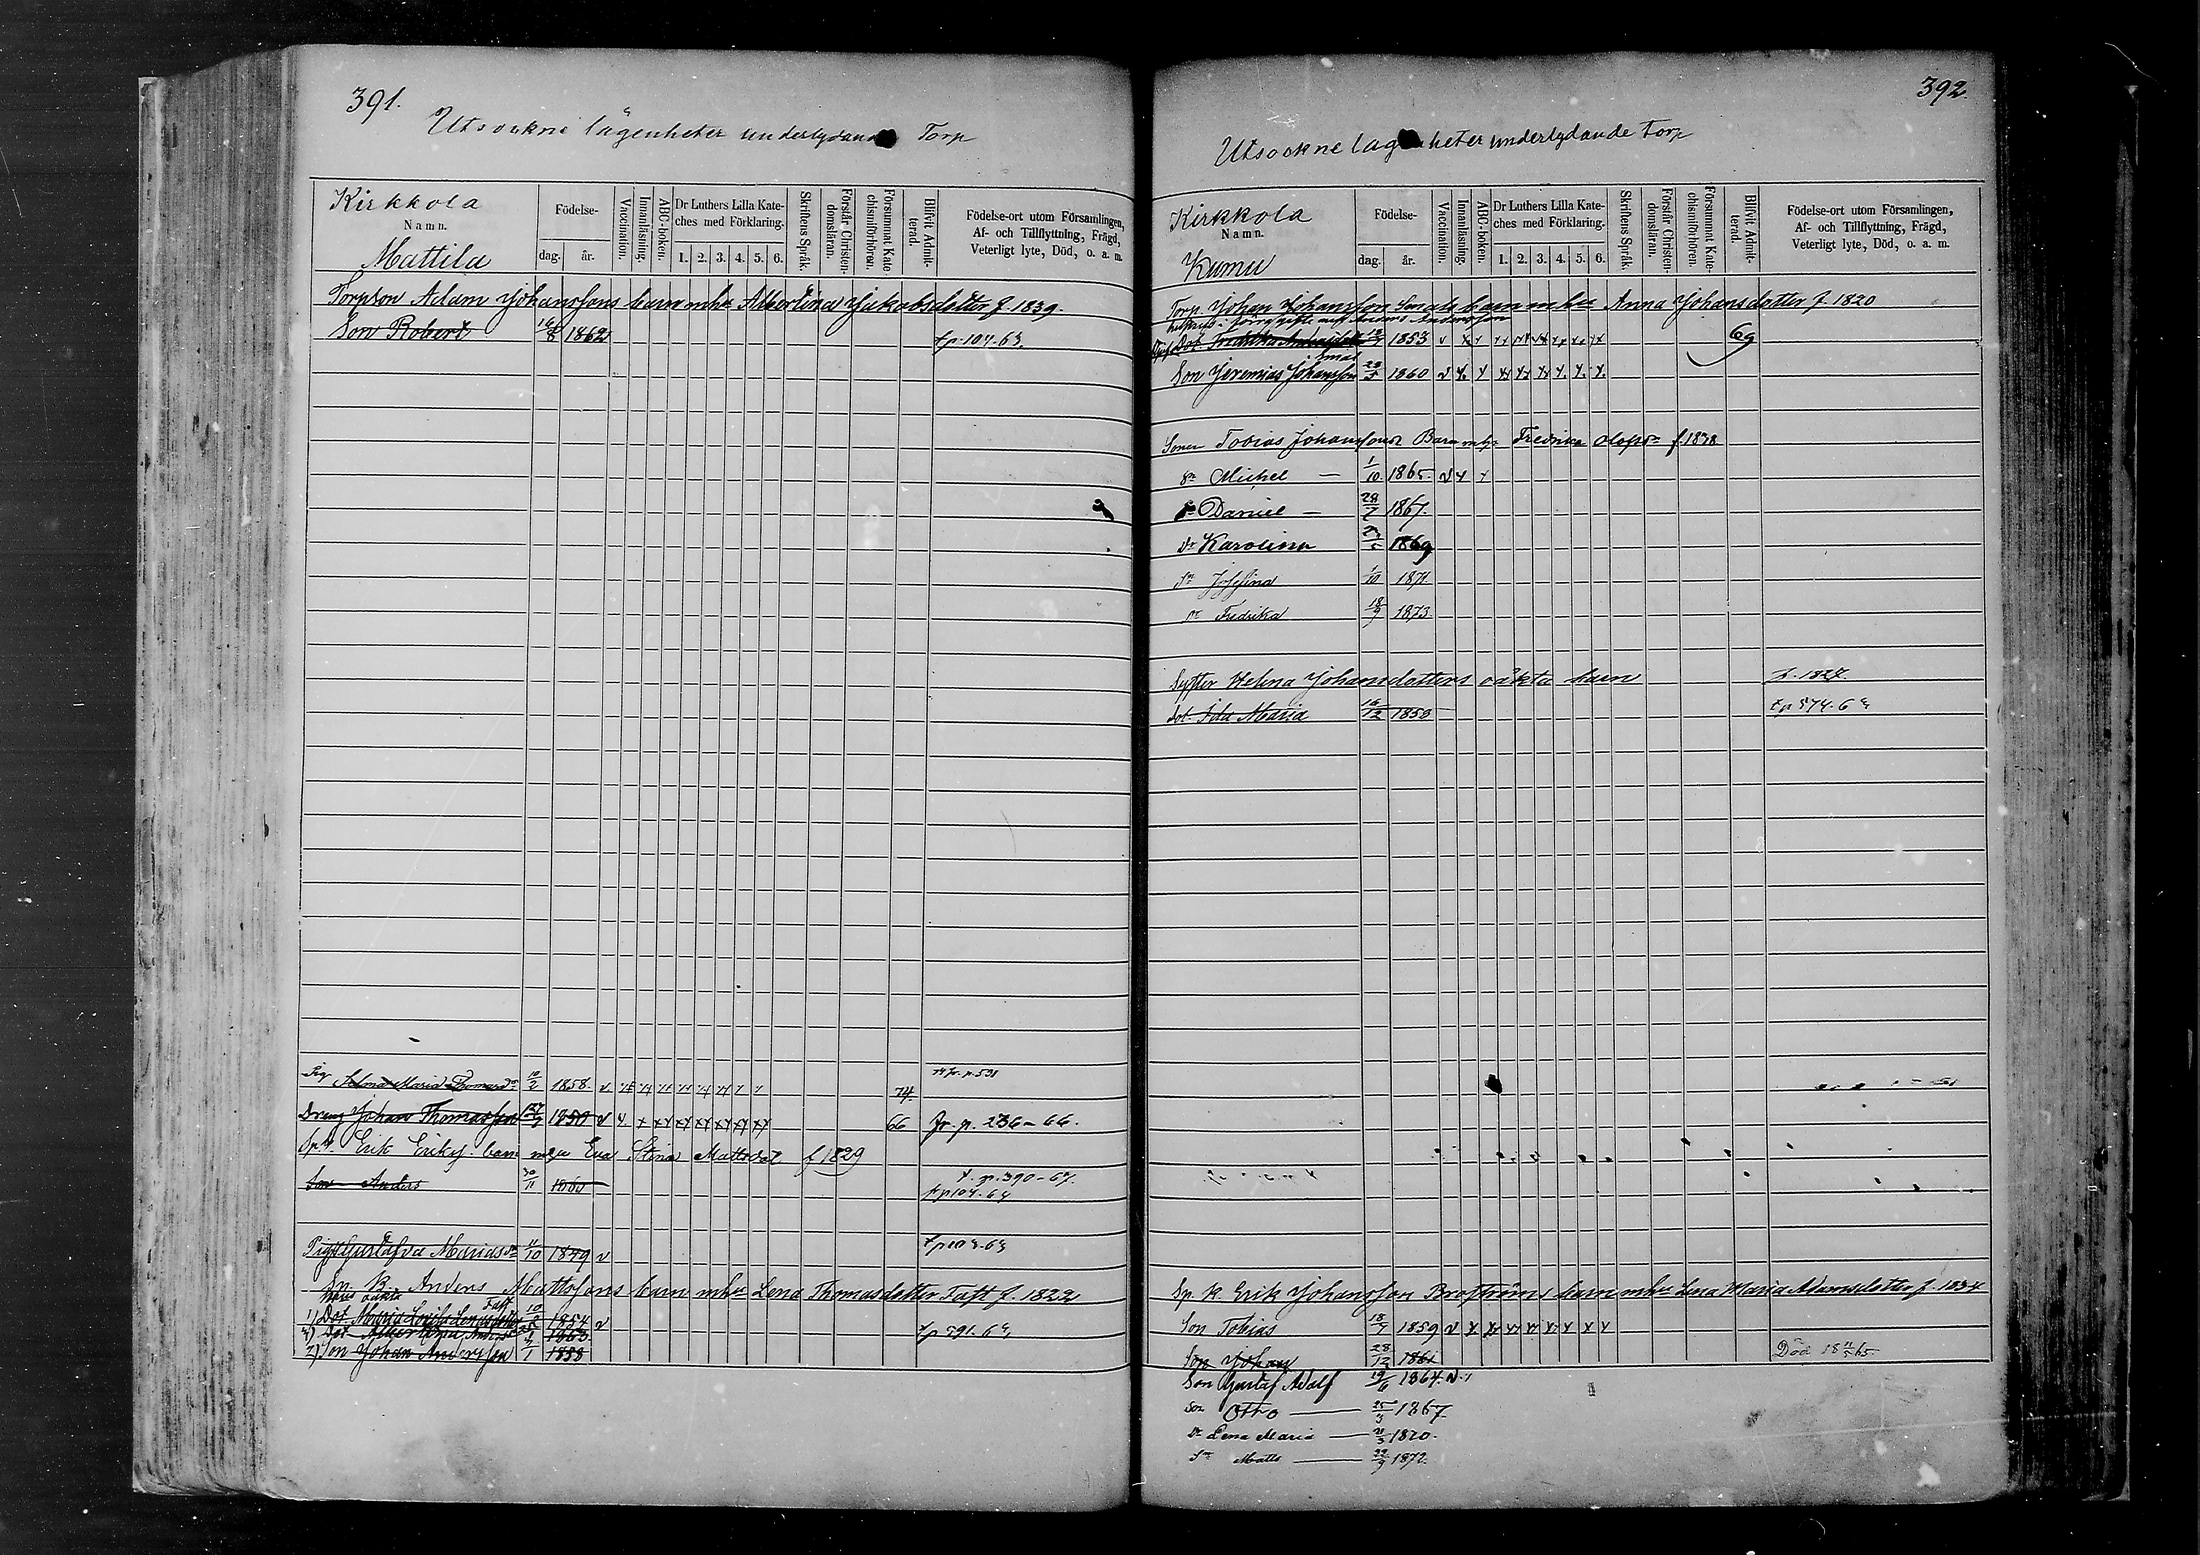 391.
Utsockne lägenheter underlydande Torp
Kirkkola
Namn.
Mattila
Födelse-
dag.
år.
Vaccination.
Innanläsning.
ABC-boken.
Dr Luthers Lilla Kate-
ches med Förklaring.
1. 2. 3. 4. 5. 6.
Skriftens Språk.
Förstår Christen-
domsläran.
Försummat Kate-
chismiförhören.
Blifvit Admit-
terad.
Födelse-ort utom Församlingen,
Af- och Tillflyttning, Frägd,
Veterligt lyte, Död, o. a. m.
Torpson Adam Johanssons barn mhu Albertina Jakobsdotter f. 1839.
Son Robert 1862 t.p. 104-63.
Selma Maria Thomasd. 10/2 1858. v 74 fr. p. 591
Dreng Johan Thomasson 1850 v 66 fr. p. 236-66.
Erik Eriks. barn m hu Eva Stina Mattsdot f 1829
Son Anders 30/11 1860 t. p. 390-67.
t p 104-64
Pig. Gustafva Mariasdr 11/10 1849 v t p 103-63
Anders Mattssons barn mhu Lena Thomasdotter Taft f. 1822
hans oäkta
1) Dot Maria Lovisa Lenasdotter Taft 10/2 1854 v
Dot Albertina Andersdr 1863 t p 591. 64
2) Son Johan Andersson 1858
392.
Utsockne lägenheter underlydande Torp
Kirkkola
Namn.
Kumu
Födelse-
dag.
år.
Vaccination.
Innanläsning.
ABC-boken.
Dr Luthers Lilla Kate-
ches med Förklaring.
1. 2. 3. 4. 5. 6.
Skriftens Språk.
Förstår Christen-
domsläran.
Försummat Kate-
chismiförhören.
Blifvit Admit-
terad.
Födelse-ort utom Församlingen,
Af- och Tillflyttning, Frägd,
Veterligt lyte, Död, o. a. m.
Torp. Johan Johansson Smals barn m hu Anna Johansdotter f. 1820
Dot. Fredrika 1853 v 69
Smal
Son Jeremias Johansson 23/5 1860 v
Sonen Tobias Johanssons Barn m h. Fredrika Olofsdr f. 1838
Sn Michel — 1/10 1865. v
Daniel — 28/7 1867.
Dr Karolina 1869
Josefina 1/10 1871.
Dr Fredrika 18/9 1873
Syster Helena Johansdotters oäkta barn f. 1827.
Dot. Ida Maria 16/12 1859 t p 574. 63
Sp. k. Erik Johansson Broströms barn mhu Lena Maria Adamsdotter f. 1834
Son Tobias 18/7 1859 v
Son Johan 28/12 1861 Död 18 65.
Son Gustaf Adolf 19/6 1864. v.
Son Otho — 25/3 1867
Dr Lena Maria — 21/3 1870.
Sn Matts — 22/9 1872.